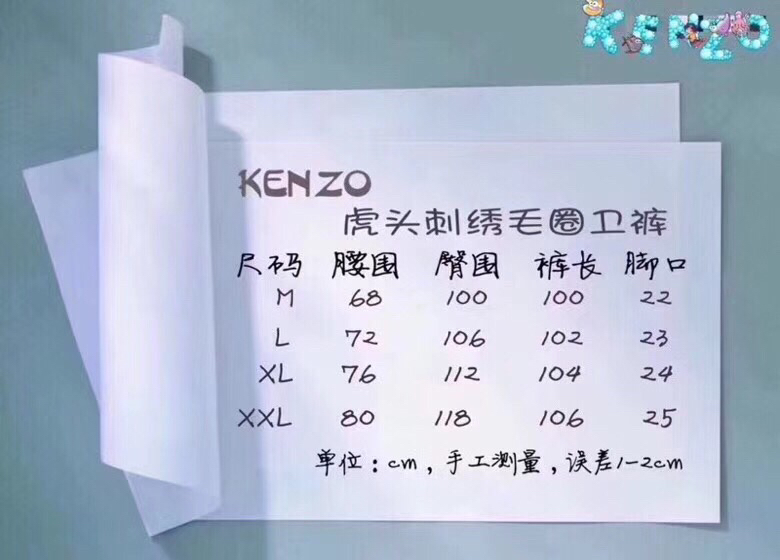 KENZO
KENZO
虎头刺绣毛圈卫裤
尺码 腰围 臀围 裤长 脚口
M 68 100 100 22
L 72 106 102 23
XL 76 112 104 24
XXL 80 118 106 25
单位：cm，手工测量，误差1-2cm